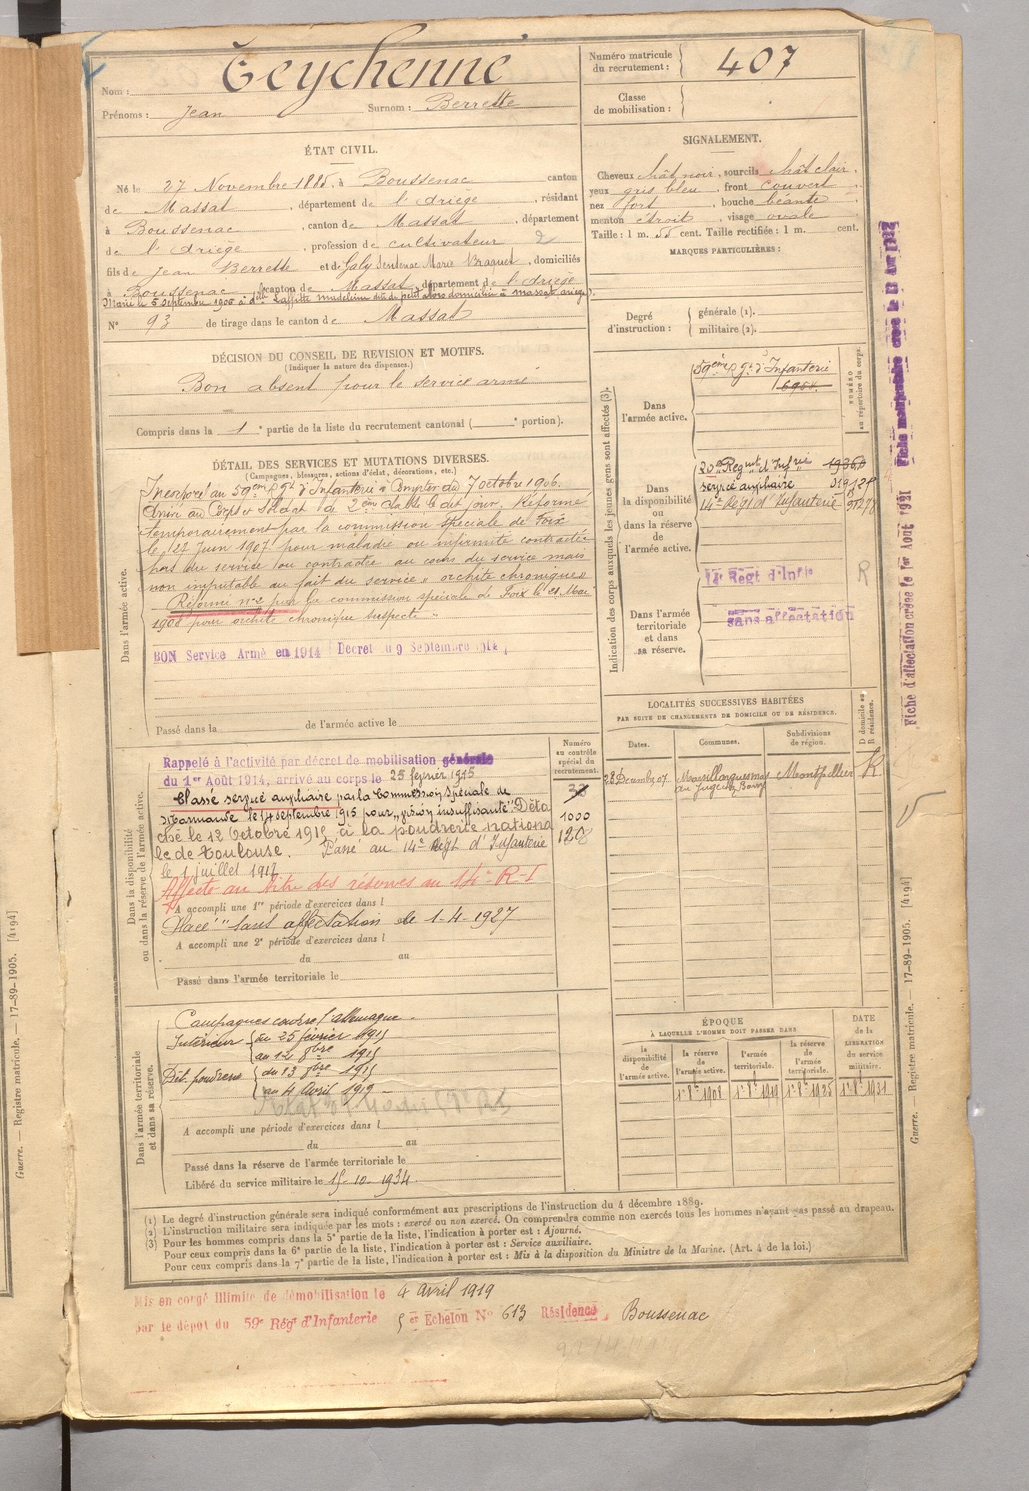 Nom : Teychenné
Prénoms : Jean Surnom : Berrette
Numéro matricule du recrutement : 407
Classe de mobilisation :
ÉTAT CIVIL.
Né le 27 Novembre 1885, à Boussenac canton
de Massat, département de l'Ariège, résidant
à Boussenac, canton de Massat, département
de l'Ariège, profession de cultivateur 2
fils de Jean Berrette et de Galy Sentenac Marie Braquet, domiciliés
à Boussenac, canton de Massat, département de l'Ariège
Marié le 5 septembre 1906 à dlle Laffite Madeleine dite de petit alors domiciliée à Massat, ariège).
N° 93 de tirage dans le canton de Massat
SIGNALEMENT.
Cheveux chât noir, sourcils chât clair,
yeux gris bleu, front couvert,
nez fort, bouche béante,
menton étroit, visage ovale
Taille : 1 m. 55 cent. Taille rectifiée : 1 m. cent.
MARQUES PARTICULIÈRES :
Degré d'instruction : générale (1).
militaire (2).
DÉCISION DU CONSEIL DE REVISION ET MOTIFS.
(Indiquer la nature des dispenses.)
Bon absent pour le service armé
Compris dans la 1e partie de la liste du recrutement cantonal ( e portion).
DÉTAIL DES SERVICES ET MUTATIONS DIVERSES.
(Campagnes, blessures, actions d'éclat, décorations, etc.)
Dans l'armée active.
Incorporé au 59ème Rgt d'Infanterie à Compter du 7 octobre 1906.
Arrivé au Corps et Soldat de 2ème classe le dit jour. Réformé
temporairement par la commission spéciale de Foix
le 27 Juin 1907 pour maladie ou infirmité contractée
hors du service ou contractée au cours du service mais
non imputable au fait du service « orchite chronique »
Réformé n°2 par la commission spéciale de Foix le 21 Mai
1908 pour orchite chronique suspecte "
BON Service Armé en 1914 (Décret du 9 Septembre 1914)
Passé dans la de l'armée active le
Indication des corps auxquels les jeunes gens sont affectés (3).
NUMÉRO au répertoire du corps.
Dans l'armée active.
59ème Rgt d'Infanterie
Dans la disponibilité ou dans la réserve de l'armée active.
20e Regmt d'Infrie
service auxiliaire
14e Régt d'Infanterie
Dans l'armée territoriale et dans sa réserve.
14e Régt d'Infie R
sans affectation
LOCALITÉS SUCCESSIVES HABITÉES
PAR SUITE DE CHANGEMENTS DE DOMICILE OU DE RÉSIDENCE.
Dates. Communes. Subdivisions de région. D domicile ou R résidence.
28 Décembre 07 Marsillargues Montpellier R
Numéro au contrôle spécial du recrutement.
1000
Dans la disponibilité ou dans la réserve de l'armée active.
Rappelé à l'activité par décret de mobilisation générale
du 1er Août 1914, arrivé au corps le 25 février 1915
Classé service auxiliaire par la Commission Spéciale de
Marmande le 14 septembre 1915 pour "vision insuffisante" Déta
ché le 12 Octobre 1915 à la poudrerie nationa
le de Toulouse. Passé au 14e Régt d'Infanterie
le 1 juillet 1917
Affecté au titre des réserves au 14e R-I
A accompli une 1re période d'exercices dans l
Placé "sans affectation" le 1-4-1927
A accompli une 2e période d'exercices dans l
du au
Passé dans l'armée territoriale le
Dans l'armée territoriale et dans sa réserve.
Campagnes contre l'allemagne.
Intérieur du 25 février 1915
au 12 8bre 1915
Dét. poudrerie du 13 8bre 1915
au 4 Avril 1919
A accompli une période d'exercices dans l
du au
Passé dans la réserve de l'armée territoriale le
Libéré du service militaire le 15-10-1934.
ÉPOQUE
À LAQUELLE L'HOMME DOIT PASSER DANS
la disponibilité de l'armée active. la réserve de l'armée active. l'armée territoriale. la réserve de l'armée territoriale.
DATE de la LIBÉRATION du service militaire.
(1) Le degré d'instruction générale sera indiqué conformément aux prescriptions de l'instruction du 4 décembre 1889.
(2) L'instruction militaire sera indiquée par les mots : exercé ou non exercé. On comprendra comme non exercés tous les hommes n'ayant pas passé au drapeau.
(3) Pour les hommes compris dans la 5e partie de la liste, l'indication à porter est : Ajourné.
Pour ceux compris dans la 6e partie de la liste, l'indication à porter est : Service auxiliaire.
Pour ceux compris dans la 7e partie de la liste, l'indication à porter est : Mis à la disposition du Ministre de la Marine. (Art. 4 de la loi.)
Mis en congé illimité de démobilisation le 4 avril 1919
par le dépôt du 59e Régt d'Infanterie 5e Echelon N° 613 Résidence, Boussenac
Fiche d'affectation créée le 1er Août 1921
Guerre. — Registre matricule. — 17-89-1905. [4194]
Guerre. — Registre matricule. — 17-89-1905. [4194]